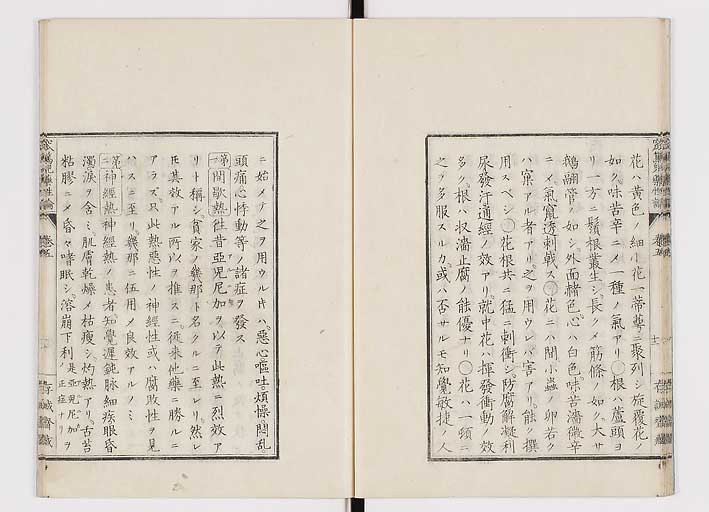 花ハ黄色ノ細小花一蒂蕚ニ聚列シ旋覆花ノ
如ク味苦辛ニメ一種ノ氣アリ○根ハ蘆頭ヨ
リ一方ニ鬚根叢生シ長クメ筋條ノ如ク大サ
鵝翮管ノ如シ外面赭色心ハ白色味苦濇微辛
ニメ氣竄透刺戟ス○花ニハ間小蟲ノ卵若ク
ハ窠アル者アリ之ヲ用ウレハ害アリ能ク撰
用スベシ○花根共ニ猛ニ刺衝シ防腐解凝利
尿發汗通經ノ效アリ就中花ハ揮發衝動ノ效
多ク根ハ収濇止腐ノ能優ナリ○花ハ一頓ニ
之ヲ多服スルカ或ハ否サルモ知覺敏捷ノ人
ニ始メテ之ヲ用ウル片ハ惡心嘔吐煩懆悶乱
頭痛心悸動等ノ諸症ヲ發ス
第一間歇熱 徃昔亞兒尼加ヲ以テ此熱ニ烈效ア
リト稱シ貧家ノ幾那ト名クルニ至レリ然レ
𪜈其效アル所以ヲ推スニ従来他藥ニ勝ルニ
アラズ只此熱惡性ノ神經性或ハ腐敗性ヲ見
ハスニ至リ幾那ニ伍用メ良效アルノミ
第二神經熱 神經熱ノ患者知覺遲鈍脉細疾眼昏
濁淚ヲ含ミ肌膚乾燥メ枯瘦シ灼熱アリ舌苔
粘膠ニメ昏々嗜眠シ溶崩下利ノ 是亞兒尼加ノ正症ナリ ヲ